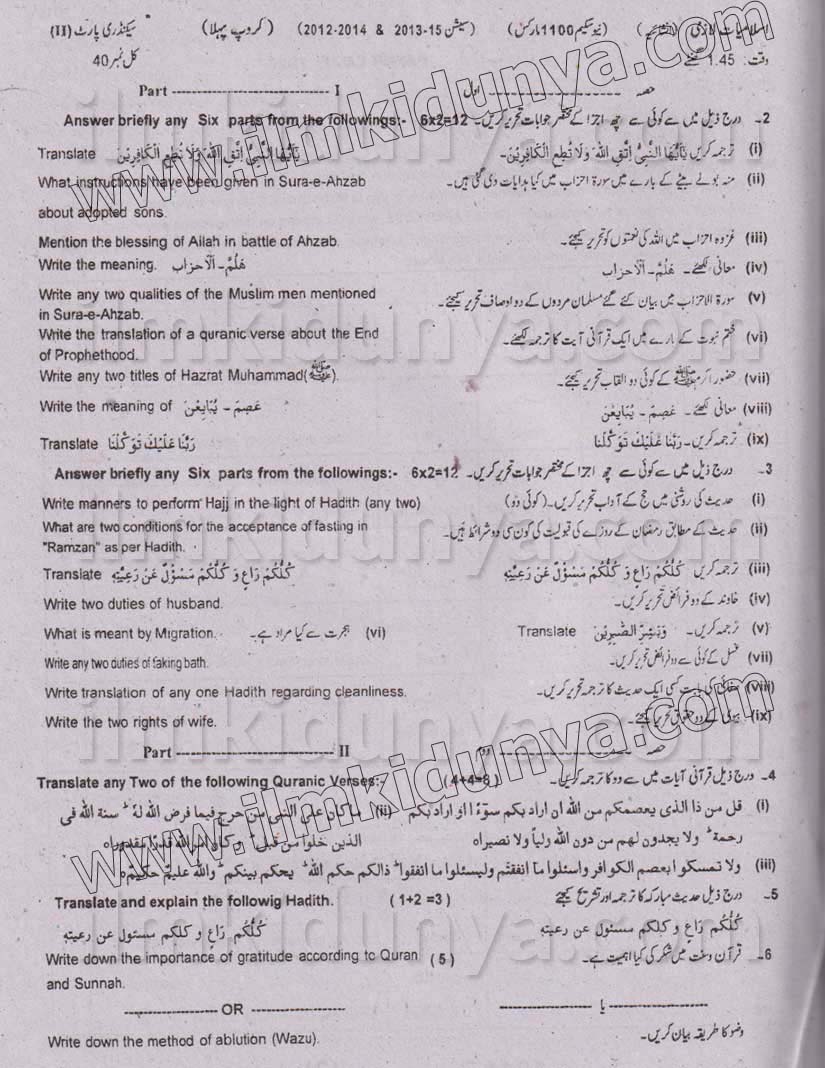 اسلامیات لازمی (انشائیہ) (نیو سکیم 1100 مارکس) (سیشن 15-2013 & 2014-2012) (گروپ پہلا) سیکنڈری پارٹ (II)
وقت: 1.45 گھنٹے کل نمبر 40
Part ------------------------------ I حصہ ------------------------ اول
Answer briefly any Six parts from the followings:- 6x2=12 2۔ درج ذیل میں سے کوئی سے چھ اجزا کے مختصر جوابات تحریر کریں۔
Translate يٰٓاَيُّهَا النَّبِىُّ اتَّقِ اللّٰهَ وَلَا تُطِعِ الْكَافِرِيْنَ (i) ترجمہ کریں يٰٓاَيُّهَا النَّبِىُّ اتَّقِ اللّٰهَ وَلَا تُطِعِ الْكَافِرِيْنَ۔
What instructions have been given in Sura-e-Ahzab (ii) منہ بولے بیٹے کے بارے میں سورۃ احزاب میں کیا ہدایات دی گئی ہیں۔
about adopted sons.
Mention the blessing of Allah in battle of Ahzab. (iii) غزوہ احزاب میں اللہ کی نعمتوں کو تحریر کیجئے۔
Write the meaning. هَلُمَّ۔ اَلْاَحْزَاب (iv) معانی لکھئے۔ هَلُمَّ۔ اَلْاَحْزَاب
Write any two qualities of the Muslim men mentioned (v) سورۃ الاحزاب میں بیان کئے گئے مسلمان مردوں کے دو اوصاف تحریر کیجئے۔
in Sura-e-Ahzab.
Write the translation of a quranic verse about the End (vi) ختم نبوت کے بارے میں ایک قرآنی آیت کا ترجمہ لکھئے۔
of Prophethood.
Write any two titles of Hazrat Muhammad(ﷺ). (vii) حضور اکرم ﷺ کے کوئی دو القاب تحریر کیجئے۔
Write the meaning of عَصِمَ۔ يُبَايِعْنَ (viii) معانی لکھئے۔ عَصِمَ۔ يُبَايِعْنَ
Translate رَبَّنَا عَلَيْكَ تَوَكَّلْنَا (ix) ترجمہ کریں۔ رَبَّنَا عَلَيْكَ تَوَكَّلْنَا
Answer briefly any Six parts from the followings:- 6x2=12 3۔ درج ذیل میں سے کوئی سے چھ اجزا کے مختصر جوابات تحریر کریں۔
Write manners to perform Hajj in the light of Hadith (any two) (i) حدیث کی روشنی میں حج کے آداب تحریر کریں۔ (کوئی دو)
What are two conditions for the acceptance of fasting in (ii) حدیث کے مطابق رمضان کے روزے کی قبولیت کی کون سی دو شرائط ہیں۔
"Ramzan" as per Hadith.
Translate كُلُّكُمْ رَاعٍ وَ كُلُّكُمْ مَسْؤُلٌ عَنْ رَعِيَّتِهٖ (iii) ترجمہ کریں كُلُّكُمْ رَاعٍ وَ كُلُّكُمْ مَسْؤُلٌ عَنْ رَعِيَّتِهٖ
Write two duties of husband. (iv) خاوند کے دو فرائض تحریر کریں۔
What is meant by Migration. ہجرت سے کیا مراد ہے۔ (vi) Translate وَبَشِّرِ الصّٰبِرِيْنَ (v) ترجمہ کریں۔
Write any two duties of faking bath. (vii) غسل کے کوئی سے دو فرائض تحریر کریں۔
Write translation of any one Hadith regarding cleanliness. (viii) صفائی کی بابت کسی ایک حدیث کا ترجمہ تحریر کریں۔
Write the two rights of wife. (ix) بیوی کے دو حقوق تحریر کیجئے۔
Part ------------------------------ II حصہ ------------------------ دوم
Translate any Two of the following Quranic Verses:- (4+4=8) 4۔ درج ذیل قرآنی آیات میں سے دو کا ترجمہ کریں۔
(i) قل من ذا الذی یعصمکم من اللہ ان اراد بکم سوٓءًا او اراد بکم (ii) ما کان علی النبی من حرج فیما فرض اللہ لہٗ ؕ سنۃ اللہ فی
رحمۃ ؕ ولا یجدون لھم من دون اللہ ولیاً ولا نصیراہ الذین خلوا من قبل ؕ و کان امر اللہ قدرا مقدوراہ
(iii) ولا تمسکوا بعصم الکوافر واسئلوا ما انفقتم ولیسئلوا ما انفقوا ؕ ذالکم حکم اللہ ؕ یحکم بینکم ؕ واللہ علیم حکیم ہ
Translate and explain the followig Hadith. (1+2 =3) 5۔ درج ذیل حدیث مبارکہ کا ترجمہ اور تشریح کیجئے
كُلُّكُم رَاعٍ و کلکم مسئول عن رعیتہٖ كُلُّكُم رَاعٍ و کلکم مسئول عن رعیتہٖ
Write down the importance of gratitude according to Quran (5) 6۔ قرآن و سنت میں شکر کی کیا اہمیت ہے۔
and Sunnah.
-------------------- OR -------------------- -------------------- یا --------------------
Write down the method of ablution (Wazu). وضو کا طریقہ بیان کریں۔
www.ilmkidunya.com
www.ilmkidunya.com
ilmkidunya.com
ilmkidunya.com
ilmkidunya.com
ilmkidunya.com
ilmkidunya.com